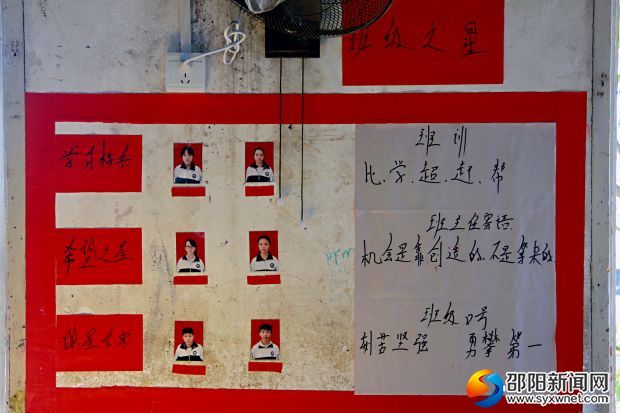 班级之星
学习标兵
希望之星
明星公寓
班训
比、学、超、赶、帮
班主任寄语
机会是靠创造的，不是等来的
班级口号
刻苦坚强 勇攀第一
邵阳新闻网
www.syxwnet.com